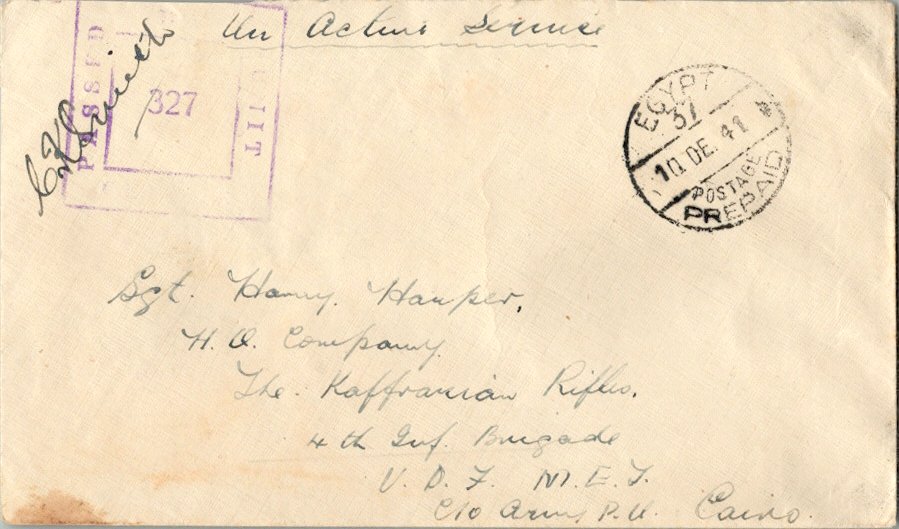 On Active Service
PASSED
327
C H Smith
EGYPT
37
10 DE. 41
POSTAGE
PREPAID
Sgt. Harry. Harper,
H.Q. Company.
The. Kaffrarian Rifles,
4th Inf. Brigade
U. D. F. M. E. F.
C/o Army P.O. Cairo.